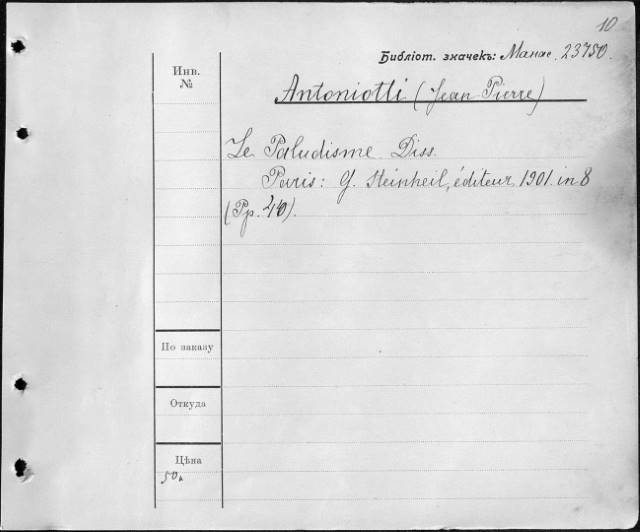 10
Библіот. значекъ: Манас. 23750.
Инв.
№
Antoniotti (Jean Pierre)
Le Paludisme. Diss.
Paris: G. Steinheil, éditeur 1901. in 8
(Pp. 40).
По заказу
Откуда
Цѣна
50к